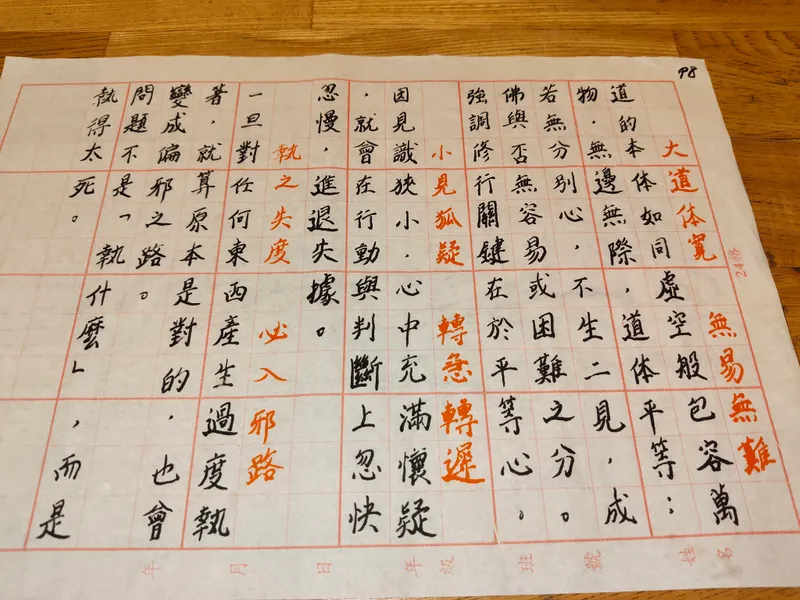 98
大道体寬 無易無難
道的本体如同虛空般包容萬
物,無邊無際,道体平等;
若無分別心,不生二見,成
佛與否無容易或困難之分。
強調修行關鍵在於平等心。
小見狐疑 轉急轉遲
因見識狹小,心中充滿懷疑
,就會在行動與判斷上忽快
忽慢,進退失據。
執之失度 必入邪路
一旦對任何東西產生過度執
著,就算原本是對的,也會
變成偏邪之路。
問題不是「執什麼」,而是
執得太死。
24格
年 月 日 年級 班 號 姓名